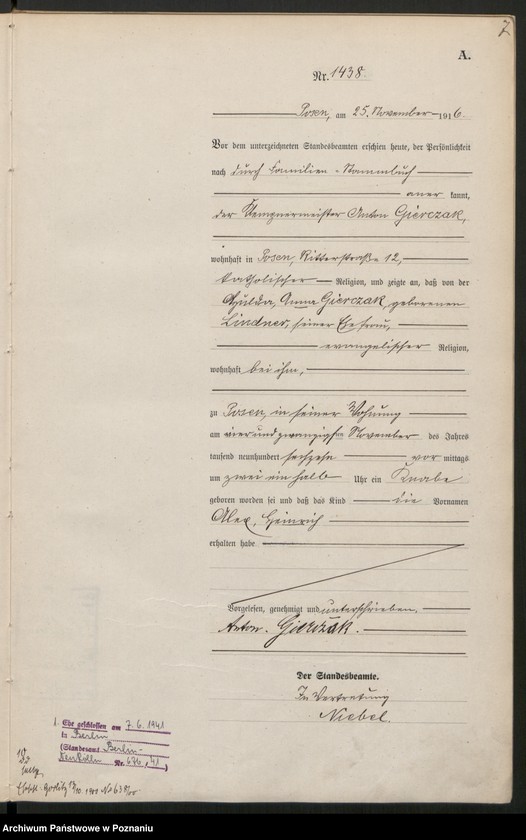 7
A.
Nr. 1438.
Posen, am 25. November 1916.
Vor dem unterzeichneten Standesbeamten erschien heute, der Persönlichkeit
nach durch Familien-Stammbuch
anerkannt,
der Klempnermeister Anton Gierczak,
wohnhaft in Posen, Ritterstraße 12,
katholischer Religion, und zeigte an, daß von der
Hulda, Anna Gierczak geborenen
Lindner, seiner Ehefrau,
evangelischer Religion,
wohnhaft bei ihm,
zu Posen, in seiner Wohnung
am vierundzwanzigsten November des Jahres
tausend neunhundert sechzehn vormittags
um zwei ein halb Uhr ein Knabe
geboren worden sei und daß das Kind die Vornamen
Alex, Heinrich
erhalten habe
Vorgelesen, genehmigt und unterschrieben.
Anton Gierczak.
Der Standesbeamte.
In Vertretung
Niebel.
1. Ehe geschlossen am 7.6.1941
in Berlin
(Standesamt Berlin-
Neukölln Nr. 676/41)
Görlitz
Archiwum Państwowe w Poznaniu